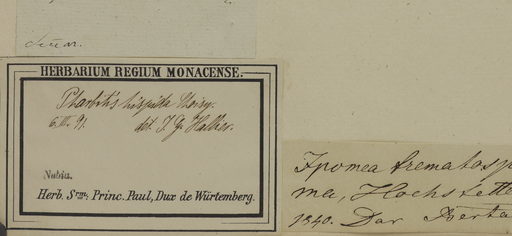 HERBARIUM REGIUM MONACENSE.
Pharbitis hispida Choisy.
6.III.91. det. J. G. Hallier.
Nubia.
Herb. Srm: Princ. Paul, Dux de Würtemberg.
Ipomea trematosp
ma, Hochstette
1840. Dar Berta